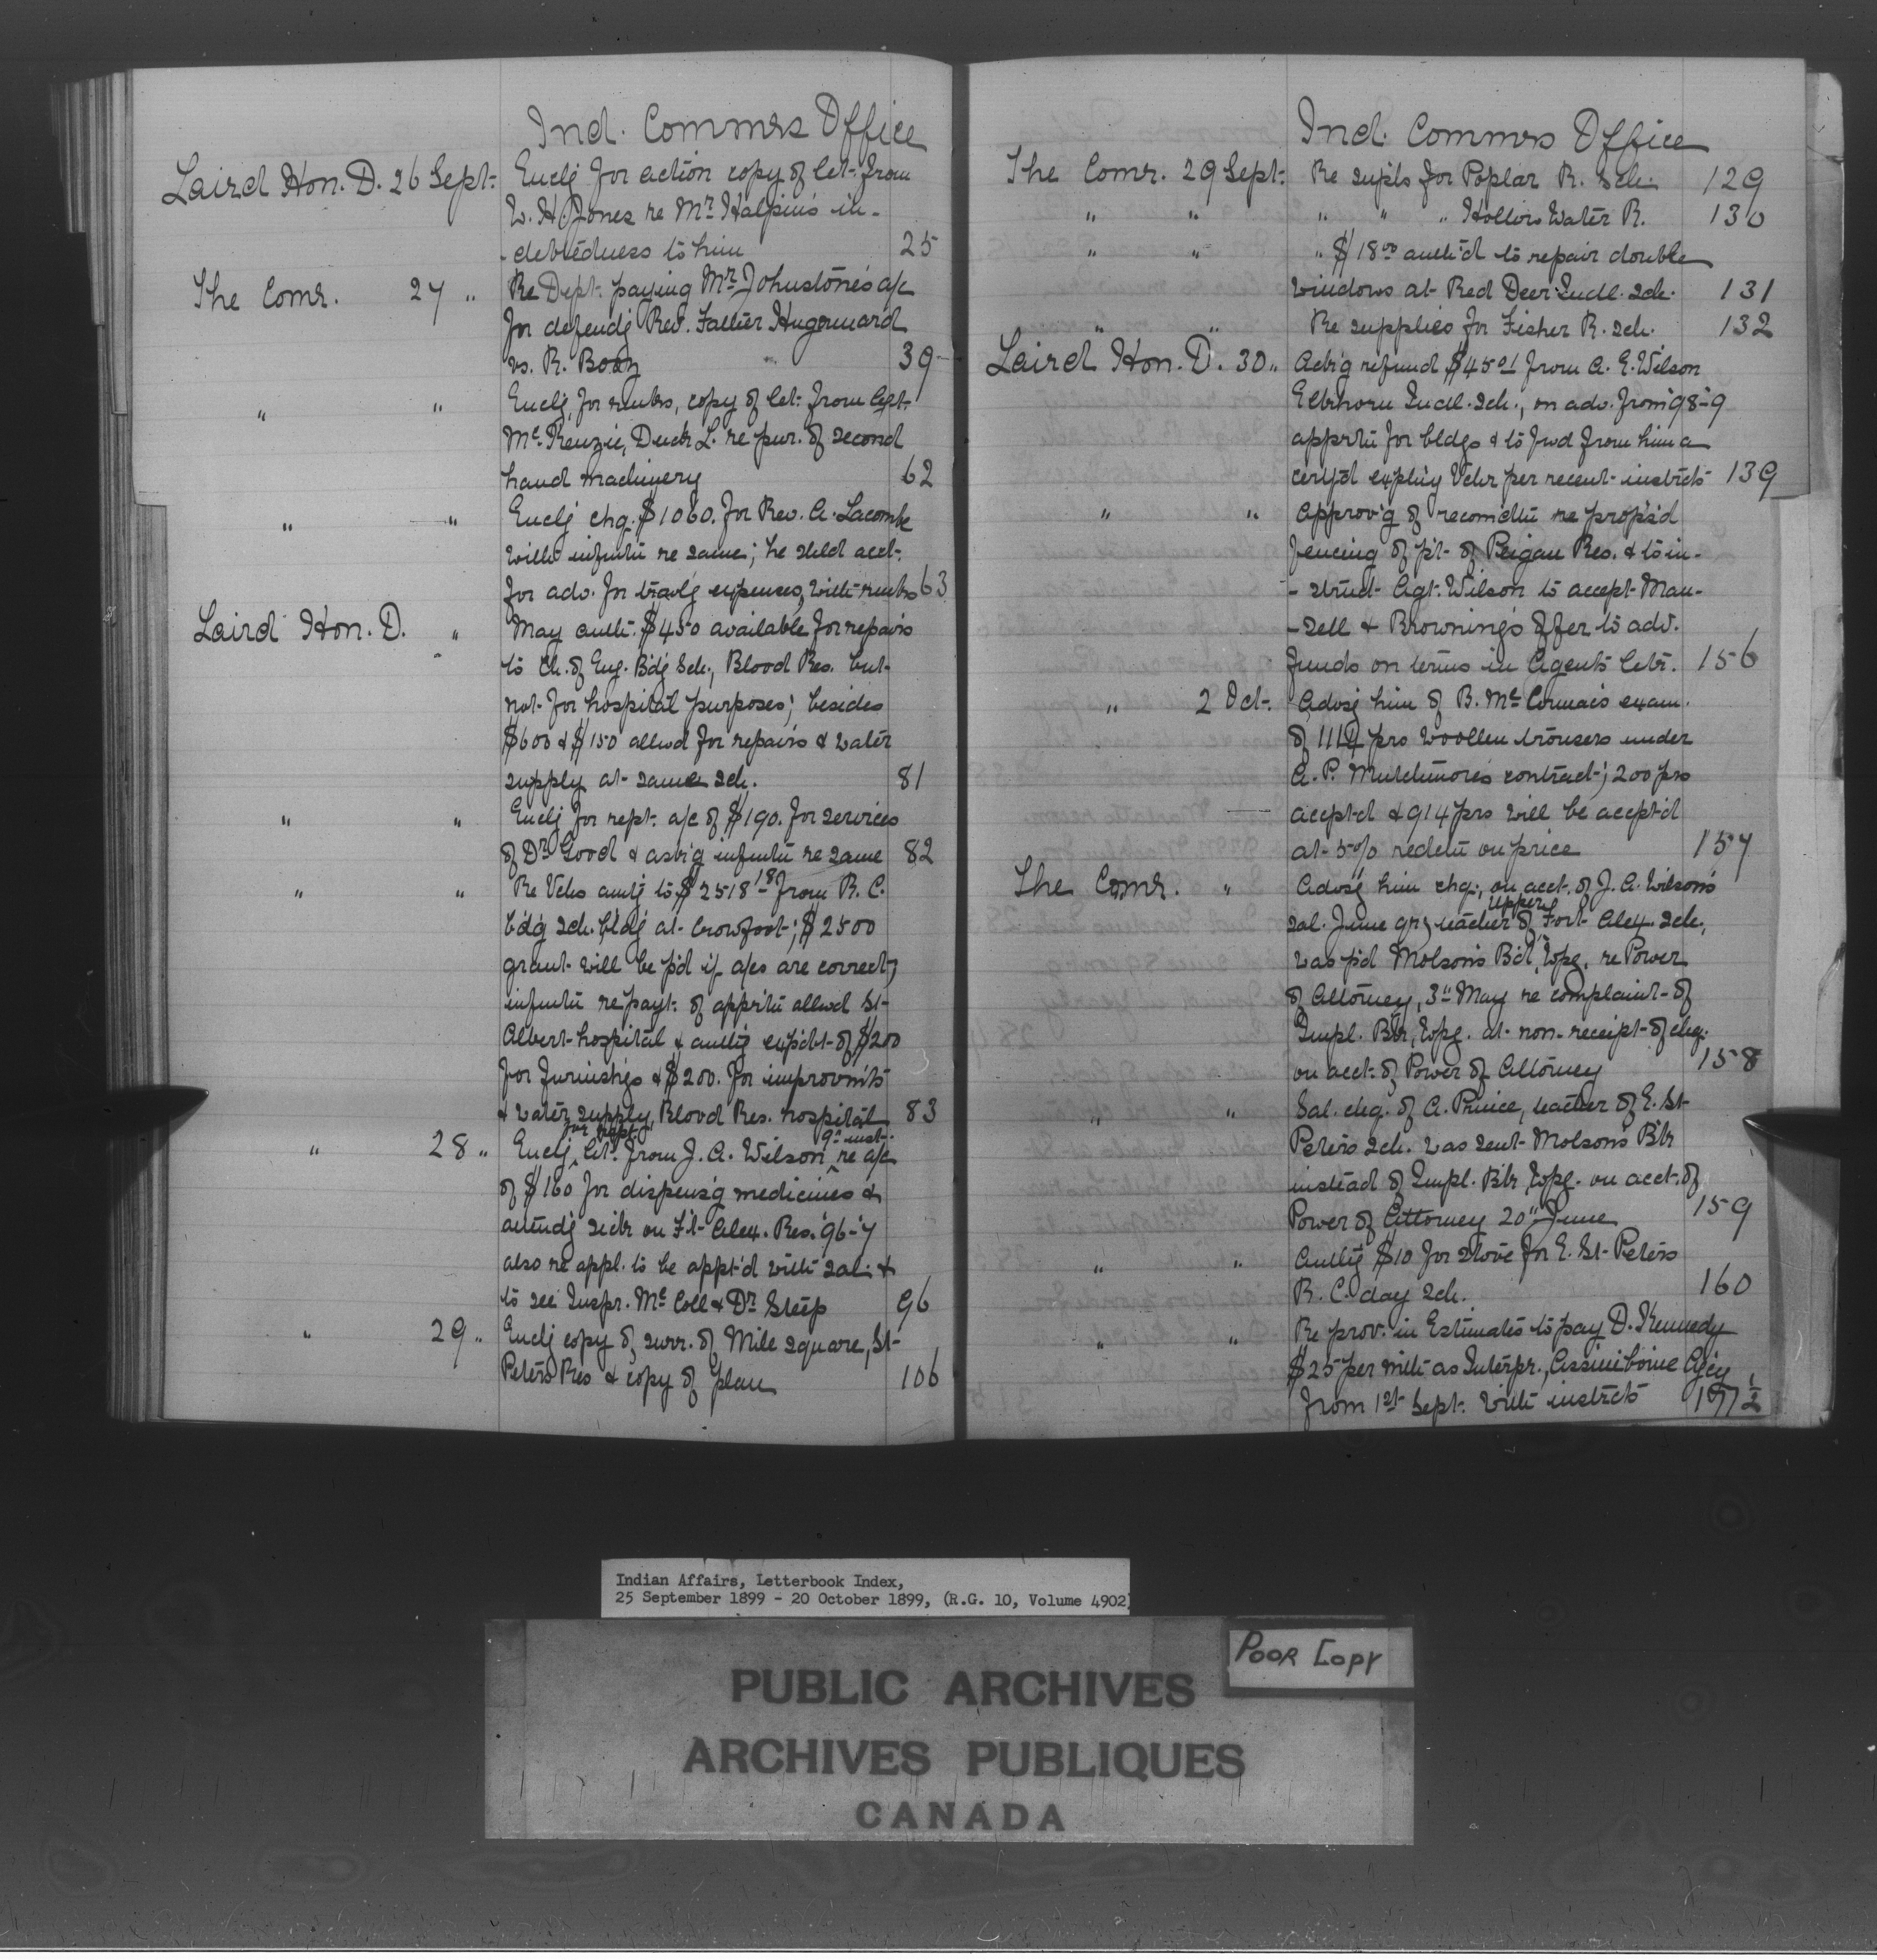 Ind. Commrs Office
Laird Hon. D. 26 Sept. Encl'g for action copy of let. from
L. H. Jones re Mr Halpin's in-
-debtedness to him 25
The Comr. 27 " Re Dept. paying Mr Johnstone's a/c
for defend'g Rev. Father Hugonnard
vs. R. Boan 39
" " Encl'g, for remks, copy of let. from Agt.
McKenzie, Duck L. re pur. of second
hand machinery 62
" " Encl'g chq. $1060. for Rev. A. Lacombe
with infmtn re same; he shld acct.
for adv. for trav'lg expenses, with remks 63
Laird Hon. D. " May auth. $450 available for repairs
to Ch. of Eng. Bd'g Sch., Blood Res. but
not for hospital purposes; besides
$600 & $150 allwd for repairs & water
supply at same sch. 81
" " Encl'g for rept. a/c of $190. for services
of Dr Good & ask'g infmtn re same 82
" " Re Vchs amt'g to $2518 18 from R. C.
bd'g sch. bld'g at Crowfoot; $2500
grant will be p'd if a/cs are correct;
infmtn re payt. of apprtn allwd St-
Albert hospital & auth'g exp'dt of $200
for furnish'gs & $200. for improvmts
& water supply, Blood Res. hospital 83
" 28 " Encl'g for rept. let. from J. A. Wilson 9th inst. re a/c
of $160 for dispens'g medicines &
attend'g sick on Ft Alex. Res. '96-7
also re appl. to be appt'd with sal. &
to see Inspr. McColl & Dr Steep 96
" 29 " Encl'g copy of surr. of Mile square, St-
Peters Res & copy of plan 106
Ind. Commrs Office
The Comr. 29 Sept. Re supls for Poplar R. Sch. 129
" " " " " Hollow Water R. 130
" " " $18 00 auth'd to repair double
windows at Red Deer Indl. Sch. 131
" " Re supplies for Fisher R. sch. 132
Laird Hon. D. 30 " Ack'g refund $45 01 from A. E. Wilson
Elkhorn Indl. Sch., on adv. from '98-9
apprtn for bldgs & to fwd from him a
expl'g Vchr per recent instrcts 139
" " Approv'g of recomdtn re prop's'd
fencing of p't of Peigan Res. & to in-
-struct Agt. Wilson to accept Maun-
-sell & Browning's offer to adv.
funds on terms in Agent's letr. 156
" 2 Oct. Advs'g him of B. McCormac's exam.
of 1114 prs woollen trousers under
A. P. Mutchmor's contract; 200 prs
accept'd & 914 prs will be accept'd
at 5% redctn on price 157
The Comr. " Advs'g him chq., on acct. of J. A. Wilson's
sal. June qr, teacher of Upper Fort Alex. Sch.,
was p'd Molson's B'k, Wpg. re Power
of Attorney, 3" May re complaint of
Impl. Bk, Wpg. at non-receipt of chq.
on acct. of Power of Attorney 158
" " Sal. chq. of A. Prince, teacher of E. St-
Peters Sch. was sent Molson's B'k
instead of Impl. B'k Wpg. on acct. of
Power of Attorney 20" June 159
" " Auth'g $10 for stove for E. St- Peters
R. C. day Sch. 160
" " Re prov. in Estimates to pay D. Kennedy
$25 per mth as Interpr., Assiniboine Ag'cy
from 1st Sept. with instrcts 197 1/2
Indian Affairs, Letterbook Index,
25 September 1899 - 20 October 1899, (R.G. 10, Volume 4902)
POOR COPY
PUBLIC ARCHIVES
ARCHIVES PUBLIQUES
CANADA